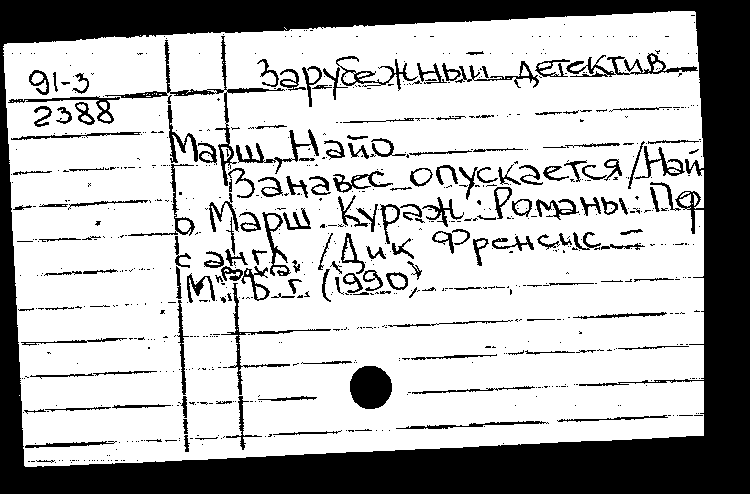 Зарубежный детектив
91-3
2388
Марш, Найо
Занавес опускается / Най-
о Марш. Кураж : Романы : Пер
с англ. / Дик Френсис. –
М.: "Радуга", Б. г. (1990)